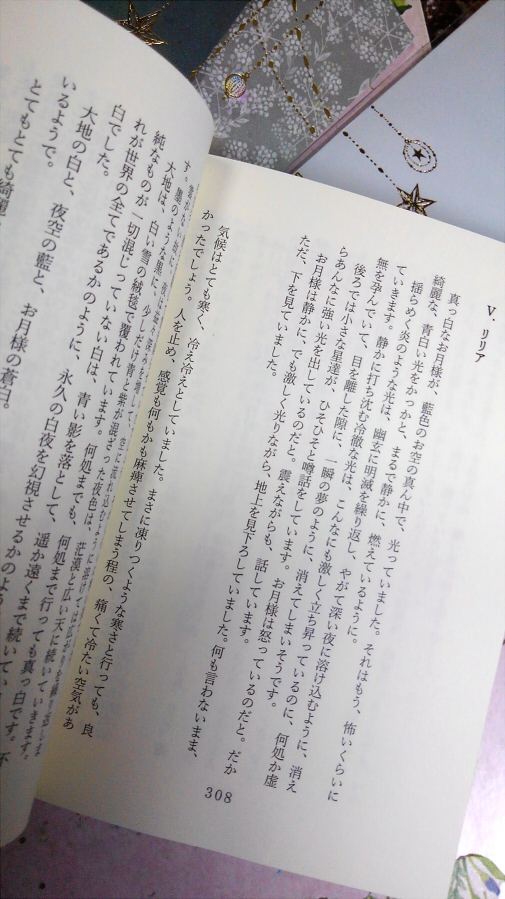 V. リリア
真っ白なお月様が、藍色のお空の真ん中で、光っていました。それはもう、怖いくらいに
綺麗な、青白い光をかっかと、まるで静かに、燃えているように。
揺らめく炎のような光は、幽玄に明滅を繰り返し、やがて深い夜に溶け込むように、消え
ていきます。静かに打ち沈む冷徹な光は、こんなにも激しく立ち昇っているのに、何処か虚
無を孕んでいて、目を離した隙に、一瞬の夢のように、消えてしまいそうです。
後ろでは小さな星達が、ひそひそと噂話をしています。お月様は怒っているのだと。だか
らあんなに強い光を出しているのだと。震えながらも、話しています。
お月様は静かに、でも激しく光りながら、地上を見下ろしていました。何も言わないまま、
ただ、下を見ていました。
気候はとても寒く、冷え冷えとしていました。まさに凍りつくような寒さと行っても、良
かったでしょう。人を止め、感覚も何もかも麻痺させてしまう程の、痛くて冷たい空気があ
308
大地は、白い雪の絨毯で覆われています。何処までも、何処まで行っても真っ白です。不
純なものが一切混じっていない白は、青い影を落として、遥か遠くまで続いてい
れが世界の全てであるかのように、永久の白夜を幻視させるかのよ
白でした。
大地の白と、夜空の藍と、お月様の蒼白。
いるようで。
とてもとても綺麗